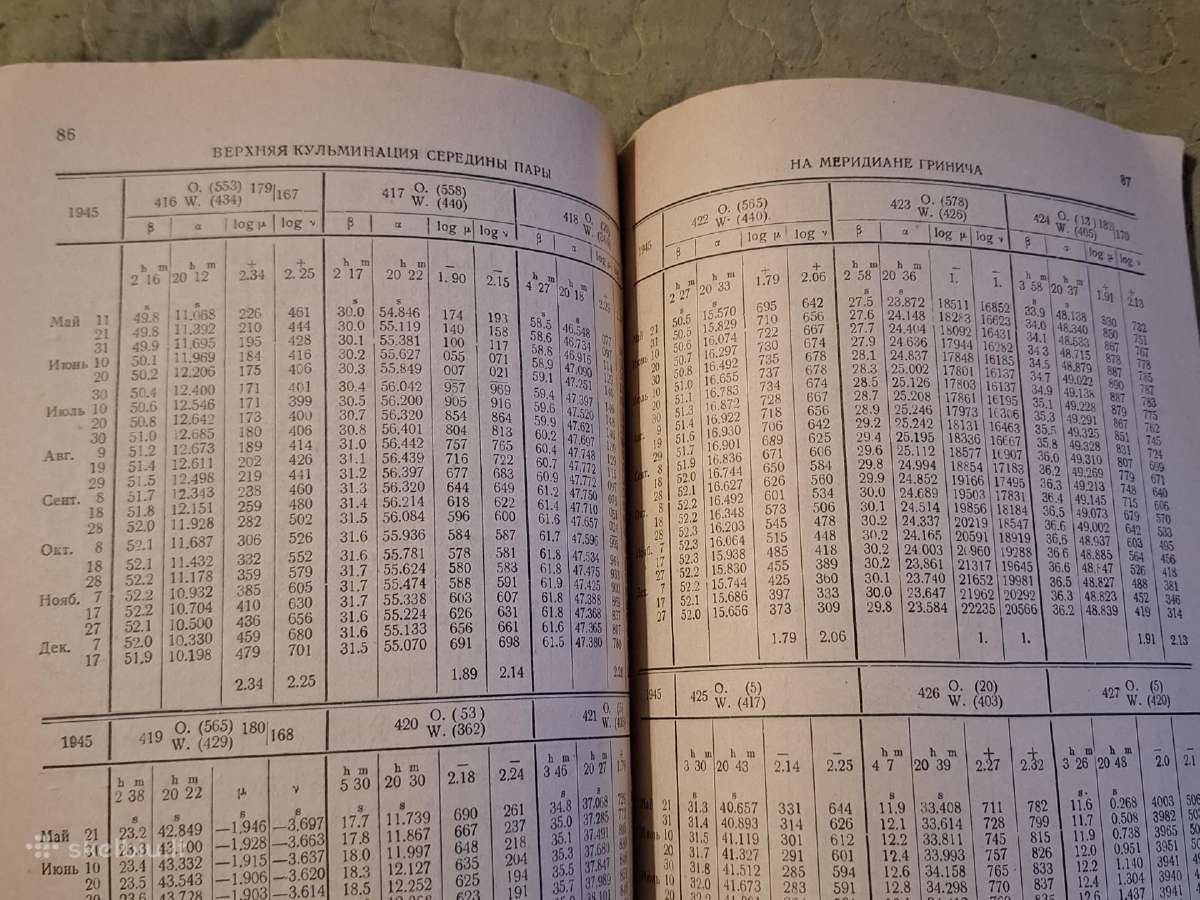 86
ВЕРХНЯЯ КУЛЬМИНАЦИЯ СЕРЕДИНЫ ПАРЫ
1945 416 O. (553) 179 167 W. (434) 417 O. (558) W. (440) 418 O.
β α log μ log ν β α log μ log ν β α log
h m h m + + h m h m − − h m h m
2 16 20 12 2.34 2.25 2 17 20 22 1.90 2.15 4 27 20 18
s s s s
Май 11 49.8 11.068 226 461 30.0 54.846 174 193 58.5 46.548
21 49.8 11.392 210 444 30.0 55.119 140 158 58.6 46.734
31 49.9 11.695 195 428 30.1 55.381 100 117 58.8 46.916
Июнь 10 50.1 11.969 184 416 30.2 55.627 055 071 58.9 47.090
20 50.2 12.206 175 406 30.3 55.849 007 021 59.1 47.251
30 50.4 12.400 171 401 30.4 56.042 957 969 59.4 47.397
Июль 10 50.6 12.546 171 399 30.5 56.200 905 916 59.6 47.520
20 50.8 12.642 173 400 30.7 56.320 854 864 59.9 47.621
30 51.0 12.685 180 406 30.8 56.401 804 813 60.2 47.697
Авг. 9 51.2 12.673 189 414 31.0 56.442 757 765 60.4 47.748
19 51.4 12.611 202 426 31.1 56.439 716 722 60.7 47.772
29 51.5 12.498 219 441 31.2 56.397 677 683 60.9 47.772
Сент. 8 51.7 12.343 238 460 31.3 56.320 644 649 61.2 47.750
18 51.8 12.151 259 480 31.4 56.214 618 622 61.4 47.710
28 52.0 11.928 282 502 31.5 56.084 596 600 61.6 47.657
Окт. 8 52.1 11.687 306 526 31.6 55.936 584 587 61.7 47.596
18 52.1 11.432 332 552 31.6 55.781 578 581 61.8 47.534
28 52.2 11.178 359 579 31.7 55.624 580 583 61.8 47.475
Нояб. 7 52.2 10.932 385 605 31.7 55.474 588 591 61.9 47.425
17 52.2 10.704 410 630 31.7 55.338 603 607 61.8 47.388
27 52.1 10.500 436 656 31.6 55.224 626 631 61.8 47.368
Дек. 7 52.0 10.330 459 680 31.6 55.133 656 661 61.6 47.365
17 51.9 10.198 479 701 31.5 55.070 691 698 61.5 47.380
2.34 2.25 1.89 2.14
1945 419 O. (565) 180 168 W. (429) 420 O. (53) W. (362) 421 O.
h m h m h m h m − − h m h m
2 38 20 22 μ ν 5 30 20 30 2.18 2.24 3 46 20 27
s s s s s s s s
Май 21 23.2 42.849 −1.946 −3.697 17.7 11.739 690 261 34.8 37.068
−1.928 −3.663 17.8 11.867 667 237 35.0 37.285
Июнь 10 23.4 43.332 −1.915 −3.637 18.0 11.997 648 218 35.1 37.491
20 23.5 43.543 −1.906 −3.620 18.3 12.127 635 204 35.3 37.680
−1.903 −3.614 18.5 12.252 625 194 35.5 37.847
НА МЕРИДИАНЕ ГРИНИЧА
87
1945 422 O. (565) W. (440). 423 O. (578) W. (426) 424 O. (13) 182 170 W. (405)
β α log μ log ν β α log μ log ν β α log μ log ν
h m h m + + h m h m − − h m h m + +
2 27 20 33 1.79 2.06 2 58 20 36 1. 1. 3 58 20 37 1.91 2.13
s s s s s s
21 50.5 15.570 695 642 27.5 23.872 18511 16852 33.9 48.138 830 732
31 50.5 15.829 710 656 27.6 24.148 18283 16623 34.0 48.340 850 751
10 50.6 16.074 722 667 27.7 24.404 18092 16431 34.1 48.533 867 767
20 50.7 16.297 730 674 27.9 24.636 17944 16282 34.3 48.715 878 778
30 50.8 16.492 735 678 28.1 24.837 17848 16185 34.5 48.879 887 785
10 51.0 16.655 737 678 28.3 25.002 17801 16137 34.7 49.022 890 787
20 51.1 16.783 734 674 28.5 25.126 17803 16137 34.9 49.138 887 783
51.3 16.872 728 667 28.7 25.208 17861 16195 35.1 49.228 879 775
51.4 16.922 718 656 28.9 25.246 17973 16306 35.3 49.291 867 762
19 51.6 16.930 706 642 29.2 25.242 18131 16463 35.5 49.325 851 745
29 51.7 16.901 689 625 29.4 25.195 18336 16667 35.8 49.328 831 724
51.9 16.836 671 606 29.6 25.112 18577 16907 36.0 49.310 807 699
18 52.0 16.744 650 584 29.8 24.994 18854 17183 36.2 49.269 779 671
28 52.1 16.627 626 560 29.9 24.852 19166 17495 36.3 49.213 748 640
52.2 16.492 601 534 30.0 24.689 19503 17831 36.4 49.145 715 606
18 52.2 16.348 573 506 30.1 24.514 19856 18184 36.5 49.073 679 570
28 52.3 16.203 545 478 30.2 24.337 20219 18547 36.6 49.002 642 533
7 52.3 16.064 515 448 30.2 24.165 20591 18919 36.6 48.937 603 495
17 52.3 15.938 485 418 30.2 24.003 20960 19288 36.6 48.885 564 456
27 52.2 15.830 455 389 30.2 23.861 21317 19645 36.6 48.847 526 418
7 52.2 15.744 425 360 30.1 23.740 21652 19981 36.5 48.827 488 381
17 52.1 15.686 397 333 30.0 23.647 21962 20292 36.3 48.823 452 346
27 52.0 15.656 373 309 29.8 23.584 22235 20566 36.2 48.839 419 314
1.79 2.06 1. 1. 1.91 2.13
1945 425 O. (5) W. (417) 426 O. (20) W. (403) 427 O. (5) W. (420)
h m h m − − h m h m + + h m h m − −
3 30 20 43 2.14 2.25 4 7 20 39 2.27 2.32 3 26 20 48 2.0 2.1
s s s s s s
Май 21 31.3 40.657 331 644 11.9 33.408 711 782 11.6 0.268 4003
31 31.4 40.893 314 626 12.1 33.614 728 799 11.7 0.508 3982
10 31.5 41.119 301 612 12.2 33.811 745 815 11.9 0.738 3965
20 31.7 41.327 291 601 12.4 33.993 757 826 12.0 0.951 3951
31.8 41.512 285 594 12.6 34.158 765 833 12.2 1.140 3941
10 32.0 41.673 283 591 12.8 34.298 770 837 12.4 1.304 3940
skelbiu.lt